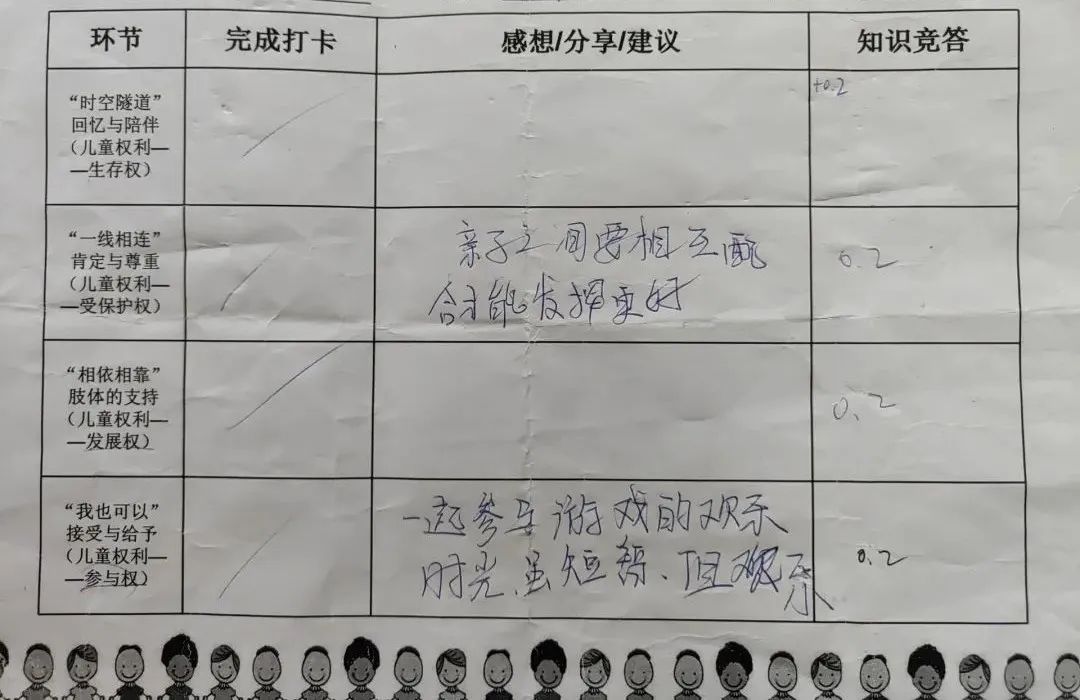 环节 完成打卡 感想/分享/建议 知识竞答
“时空隧道”
回忆与陪伴
（儿童权利—
—生存权）
+0.2
“一线相连”
肯定与尊重
（儿童权利—
—受保护权）
亲子之间要相互配
合才能发挥更好
0.2
“相依相靠”
肢体的支持
（儿童权利—
—发展权）
0.2
“我也可以”
接受与给予
（儿童权利—
—参与权）
一起参与游戏的欢乐
时光虽短暂、但欢乐
0.2